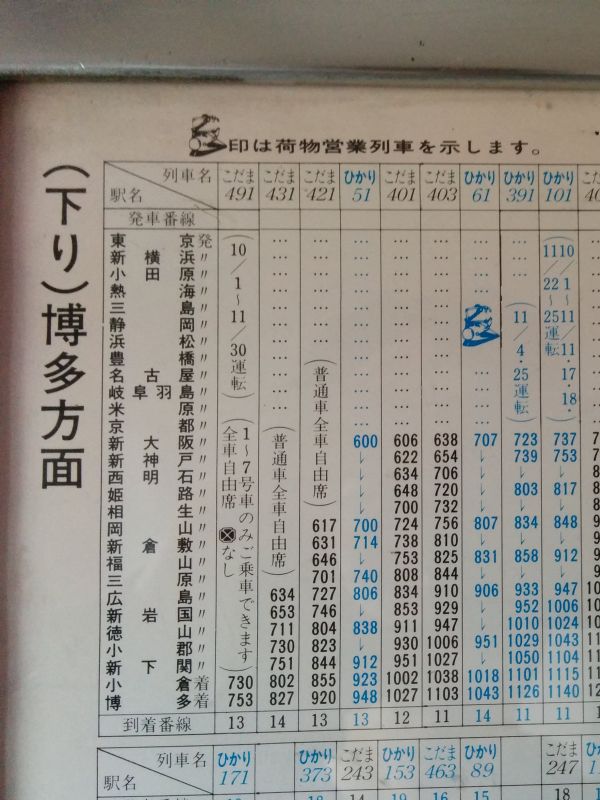 印は荷物営業列車を示します。
(下り)博多方面
列車名 こだま こだま こだま ひかり こだま こだま ひかり ひかり ひかり
駅名 491 431 421 51 401 403 61 391 101
発車番線
東京発 … … … … … …
新横浜〃 … … … … … …
小田原〃 … … … … … …
熱海〃 … … … … …
三島〃 … … … … …
静岡〃 … … … …
浜松〃 … … … …
豊橋〃 … … … …
名古屋〃 … … … …
岐阜羽島〃 … … … …
米原〃 … … … …
京都〃 … … … …
新大阪〃 600 606 638 707 723 737
新神戸〃 ↓ 622 654 ↓ 739 753
西明石〃 ↓ 634 706 ↓ ↓ ↓
姫路〃 ↓ 648 720 ↓ 803 817
相生〃 ↓ 700 732 ↓ ↓ ↓
岡山〃 617 700 724 756 807 834 848
新倉敷〃 631 714 738 810 ↓ ↓ ↓
福山〃 646 ↓ 753 825 831 858 912
三原〃 701 740 808 844 ↓ ↓ ↓
広島〃 634 727 806 834 910 906 933 947
新岩国〃 653 746 ↓ 853 929 ↓ 952 1006
徳山〃 711 804 838 911 947 ↓ 1010 1024
小郡〃 730 823 ↓ 930 1006 951 1029 1043
新下関〃 751 844 912 951 1027 ↓ 1050 1104
小倉着 730 802 855 923 1002 1038 1018 1101 1115
博多着 753 827 920 948 1027 1103 1043 1126 1140
到着番線 13 14 13 13 12 11 14 11 11
(10/1～11/30運転)
(1～7号車のみご乗車できます
全車自由席 なし)
(普通車全車自由席)
(普通車全車自由席)
(11/4・25運転)
列車名 ひかり ひかり こだま ひかり こだま ひかり こだま
駅名 171 373 243 153 463 89 247